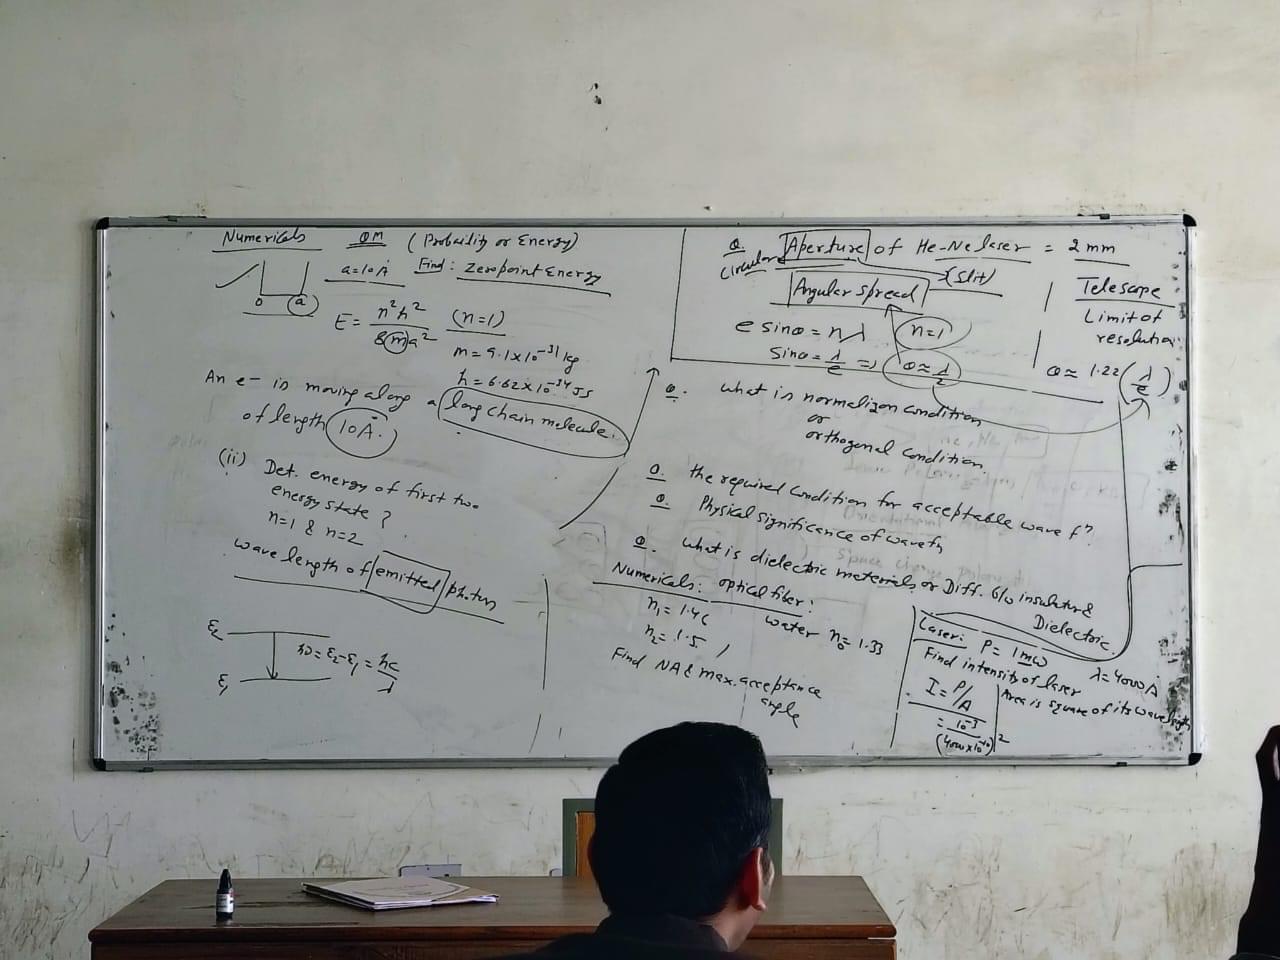 Numericals QM (Probaility or Energy)
a=10Å Find: Zero point Energy
0 a
E = n²h²/8ma² (n=1)
m = 9.1×10⁻³¹ kg
h = 6.62×10⁻³⁴ Js
An e- is moving along a long chain molecule.
of length 10Å.
(ii) Det. energy of first two
energy state?
n=1 & n=2
wave length of emitted photon
E₂
hν = E₂-E₁ = hc/λ
E₁
Q. Aperture of He-Ne laser = 2mm
Circular (Slit)
Angular spread
e sinθ = nλ n=1
Sinθ = λ/e => θ≈ λ/2
Telescope
Limit of
resolution
θ≈ 1.22 (λ/e)
Q. what is normalizon condition
or
orthogonal condition.
Q. the required condition for acceptable wave fⁿ.
Q. Physical significance of wavefn
Q. what is dielectric materials or Diff. b/w insulator &
Dielectric.
Numericals: optical fiber:
n₁ = 1.46 water n₀ = 1.33
n₂ = 1.5,
Find NA & max. acceptance
angle
Laser: P = 1mw
λ=4000Å
Find intensity of laser
I = P/A Area is square of its wavelength
= 10⁻³/(4000×10⁻¹⁰)²